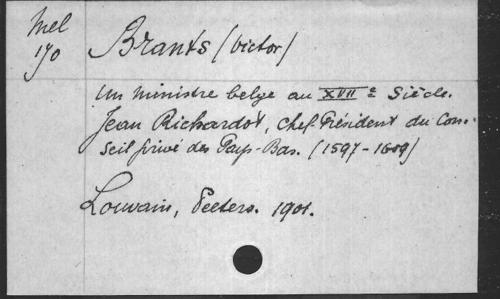 Mel
170
Brants (Victor)
Un ministre belge au XVIIe Siècle.
Jean Richardot, Chef-Président du Con-
seil privé des Pays-Bas. (1597-1609)
Louvain, Peeters. 1901.